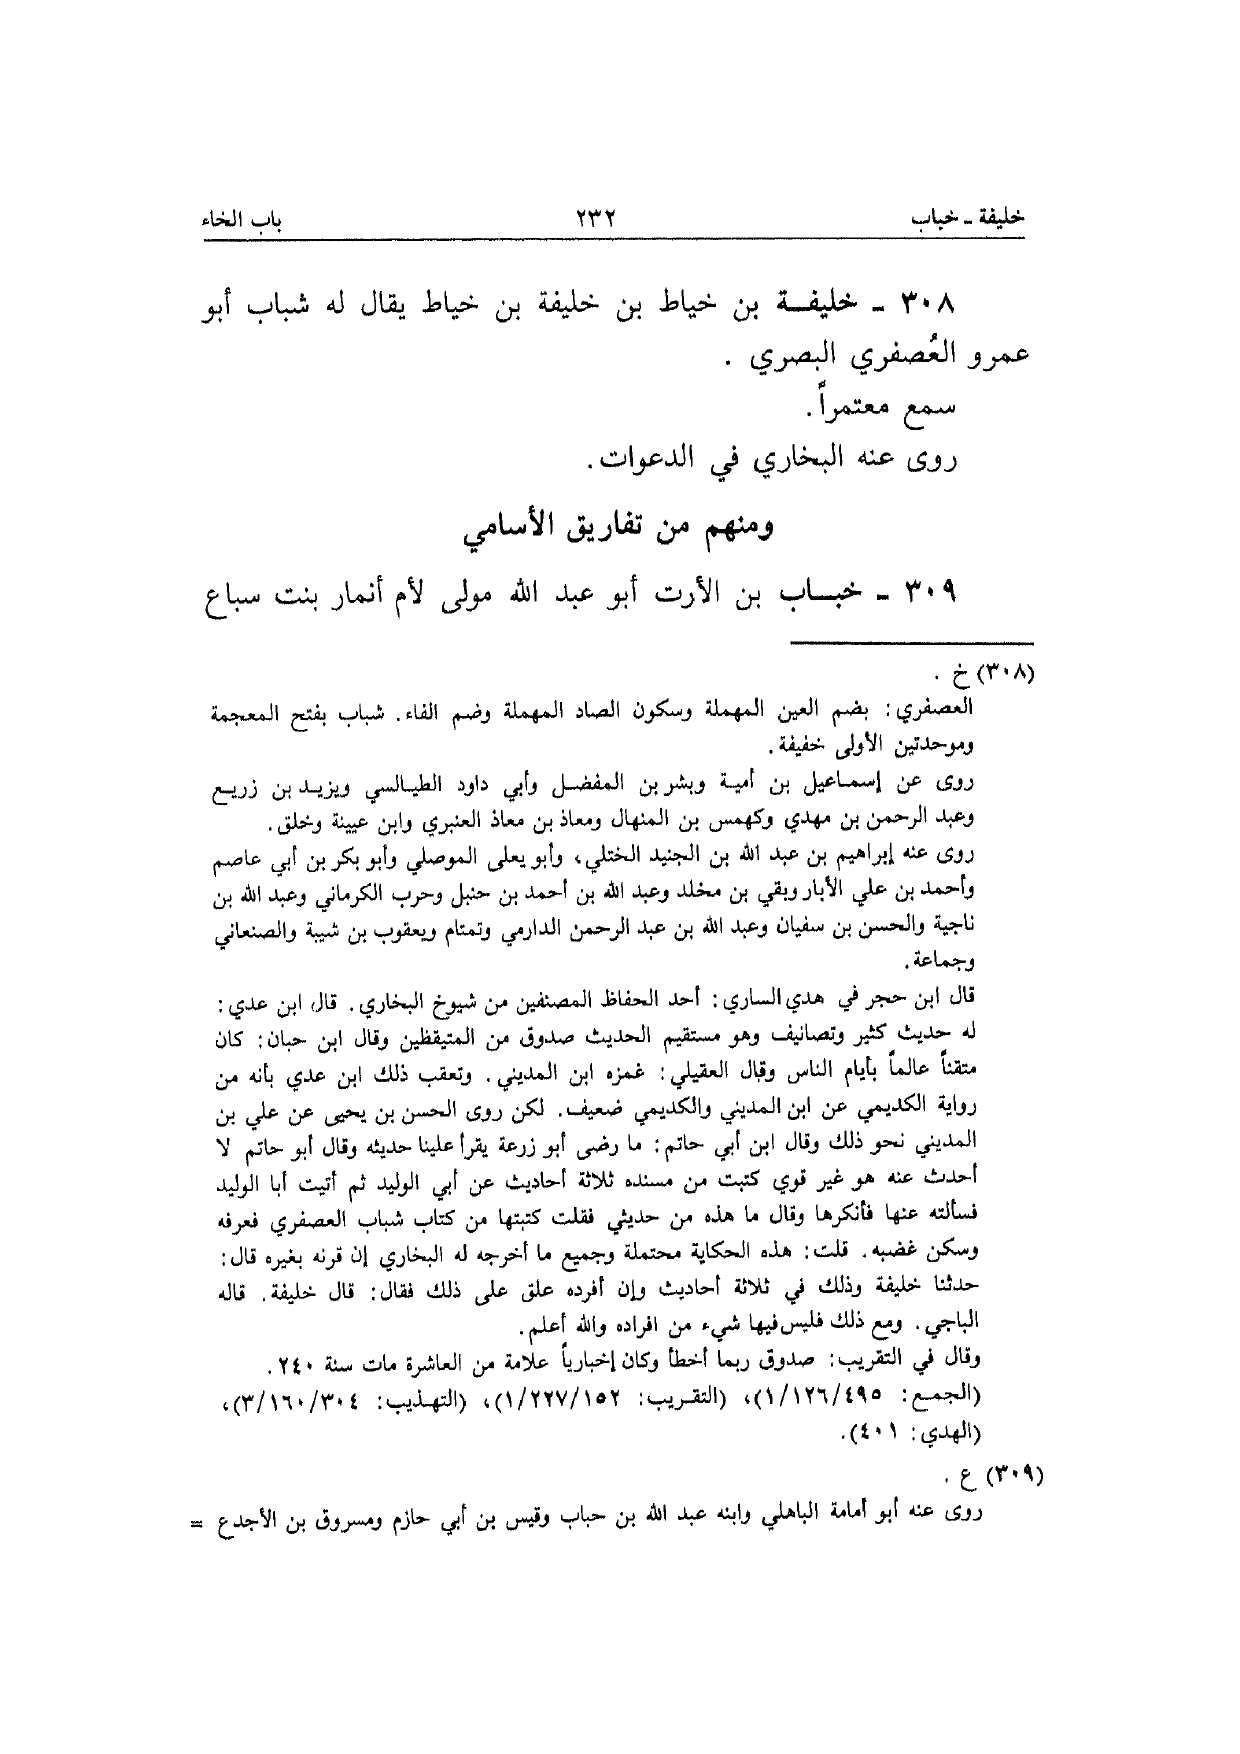 خليفة - خباب ٢٣٢ باب الخاء
٣٠٨ - خليفة بن خياط بن خليفة بن خياط يقال له شباب أبو
عمرو العُصفري البصري .
سمع معتمراً .
روى عنه البخاري في الدعوات .
ومنهم من تفاريق الأسامي
٣٠٩ - خباب بن الأرت أبو عبد الله مولى لأم أنمار بنت سباع
(٣٠٨) خ .
العصفري : بضم العين المهملة وسكون الصاد المهملة وضم الفاء . شباب بفتح المعجمة
وموحدتين الأولى خفيفة .
روى عن إسماعيل بن أمية وبشر بن المفضل وأبي داود الطيالسي ويزيد بن زريع
وعبد الرحمن بن مهدي وكهمس بن المنهال ومعاذ بن معاذ العنبري وابن عيينة وخلق .
روى عنه إبراهيم بن عبد الله بن الجنيد الختلي، وأبو يعلى الموصلي وأبو بكر بن أبي عاصم
وأحمد بن علي الأبار وبقي بن مخلد وعبد الله بن أحمد بن حنبل وحرب الكرماني وعبد الله بن
ناجية والحسن بن سفيان وعبد الله بن عبد الرحمن الدارمي وتمتام ويعقوب بن شيبة والصنعاني
وجماعة .
قال ابن حجر في هدي الساري : أحد الحفاظ المصنفين من شيوخ البخاري . قال ابن عدي :
له حديث كثير وتصانيف وهو مستقيم الحديث صدوق من المتيقظين وقال ابن حبان : كان
متقناً عالماً بأيام الناس وقال العقيلي : غمزه ابن المديني . وتعقب ذلك ابن عدي بأنه من
رواية الكديمي عن ابن المديني والكديمي ضعيف . لكن روى الحسن بن يحيى عن علي بن
المديني نحو ذلك وقال ابن أبي حاتم : ما رضى أبو زرعة يقرأ علينا حديثه وقال أبو حاتم لا
أحدث عنه هو غير قوي كتبت من مسنده ثلاثة أحاديث عن أبي الوليد ثم أتيت أبا الوليد
فسألته عنها فأنكرها وقال ما هذه من حديثي فقلت كتبتها من كتاب شباب العصفري فعرفه
وسكن غضبه . قلت : هذه الحكاية محتملة وجميع ما أخرجه له البخاري إن قرنه بغيره قال :
حدثنا خليفة وذلك في ثلاثة أحاديث وإن أفرده علق على ذلك فقال : قال خليفة . قاله
الباجي . ومع ذلك فليس فيها شيء من افراده والله أعلم .
وقال في التقريب : صدوق ربما أخطأ وكان إخبارياً علامة من العاشرة مات سنة ٢٤٠ .
(الجمع : ١/١٢٦/٤٩٥)، (التقريب : ١/٢٢٧/١٥٢)، (التهذيب : ٣/١٦٠/٣٠٤)،
(الهدي : ٤٠١) .
(٣٠٩) ع .
روى عنه أبو أمامة الباهلي وابنه عبد الله بن حباب وقيس بن أبي حازم ومسروق بن الأجدع =